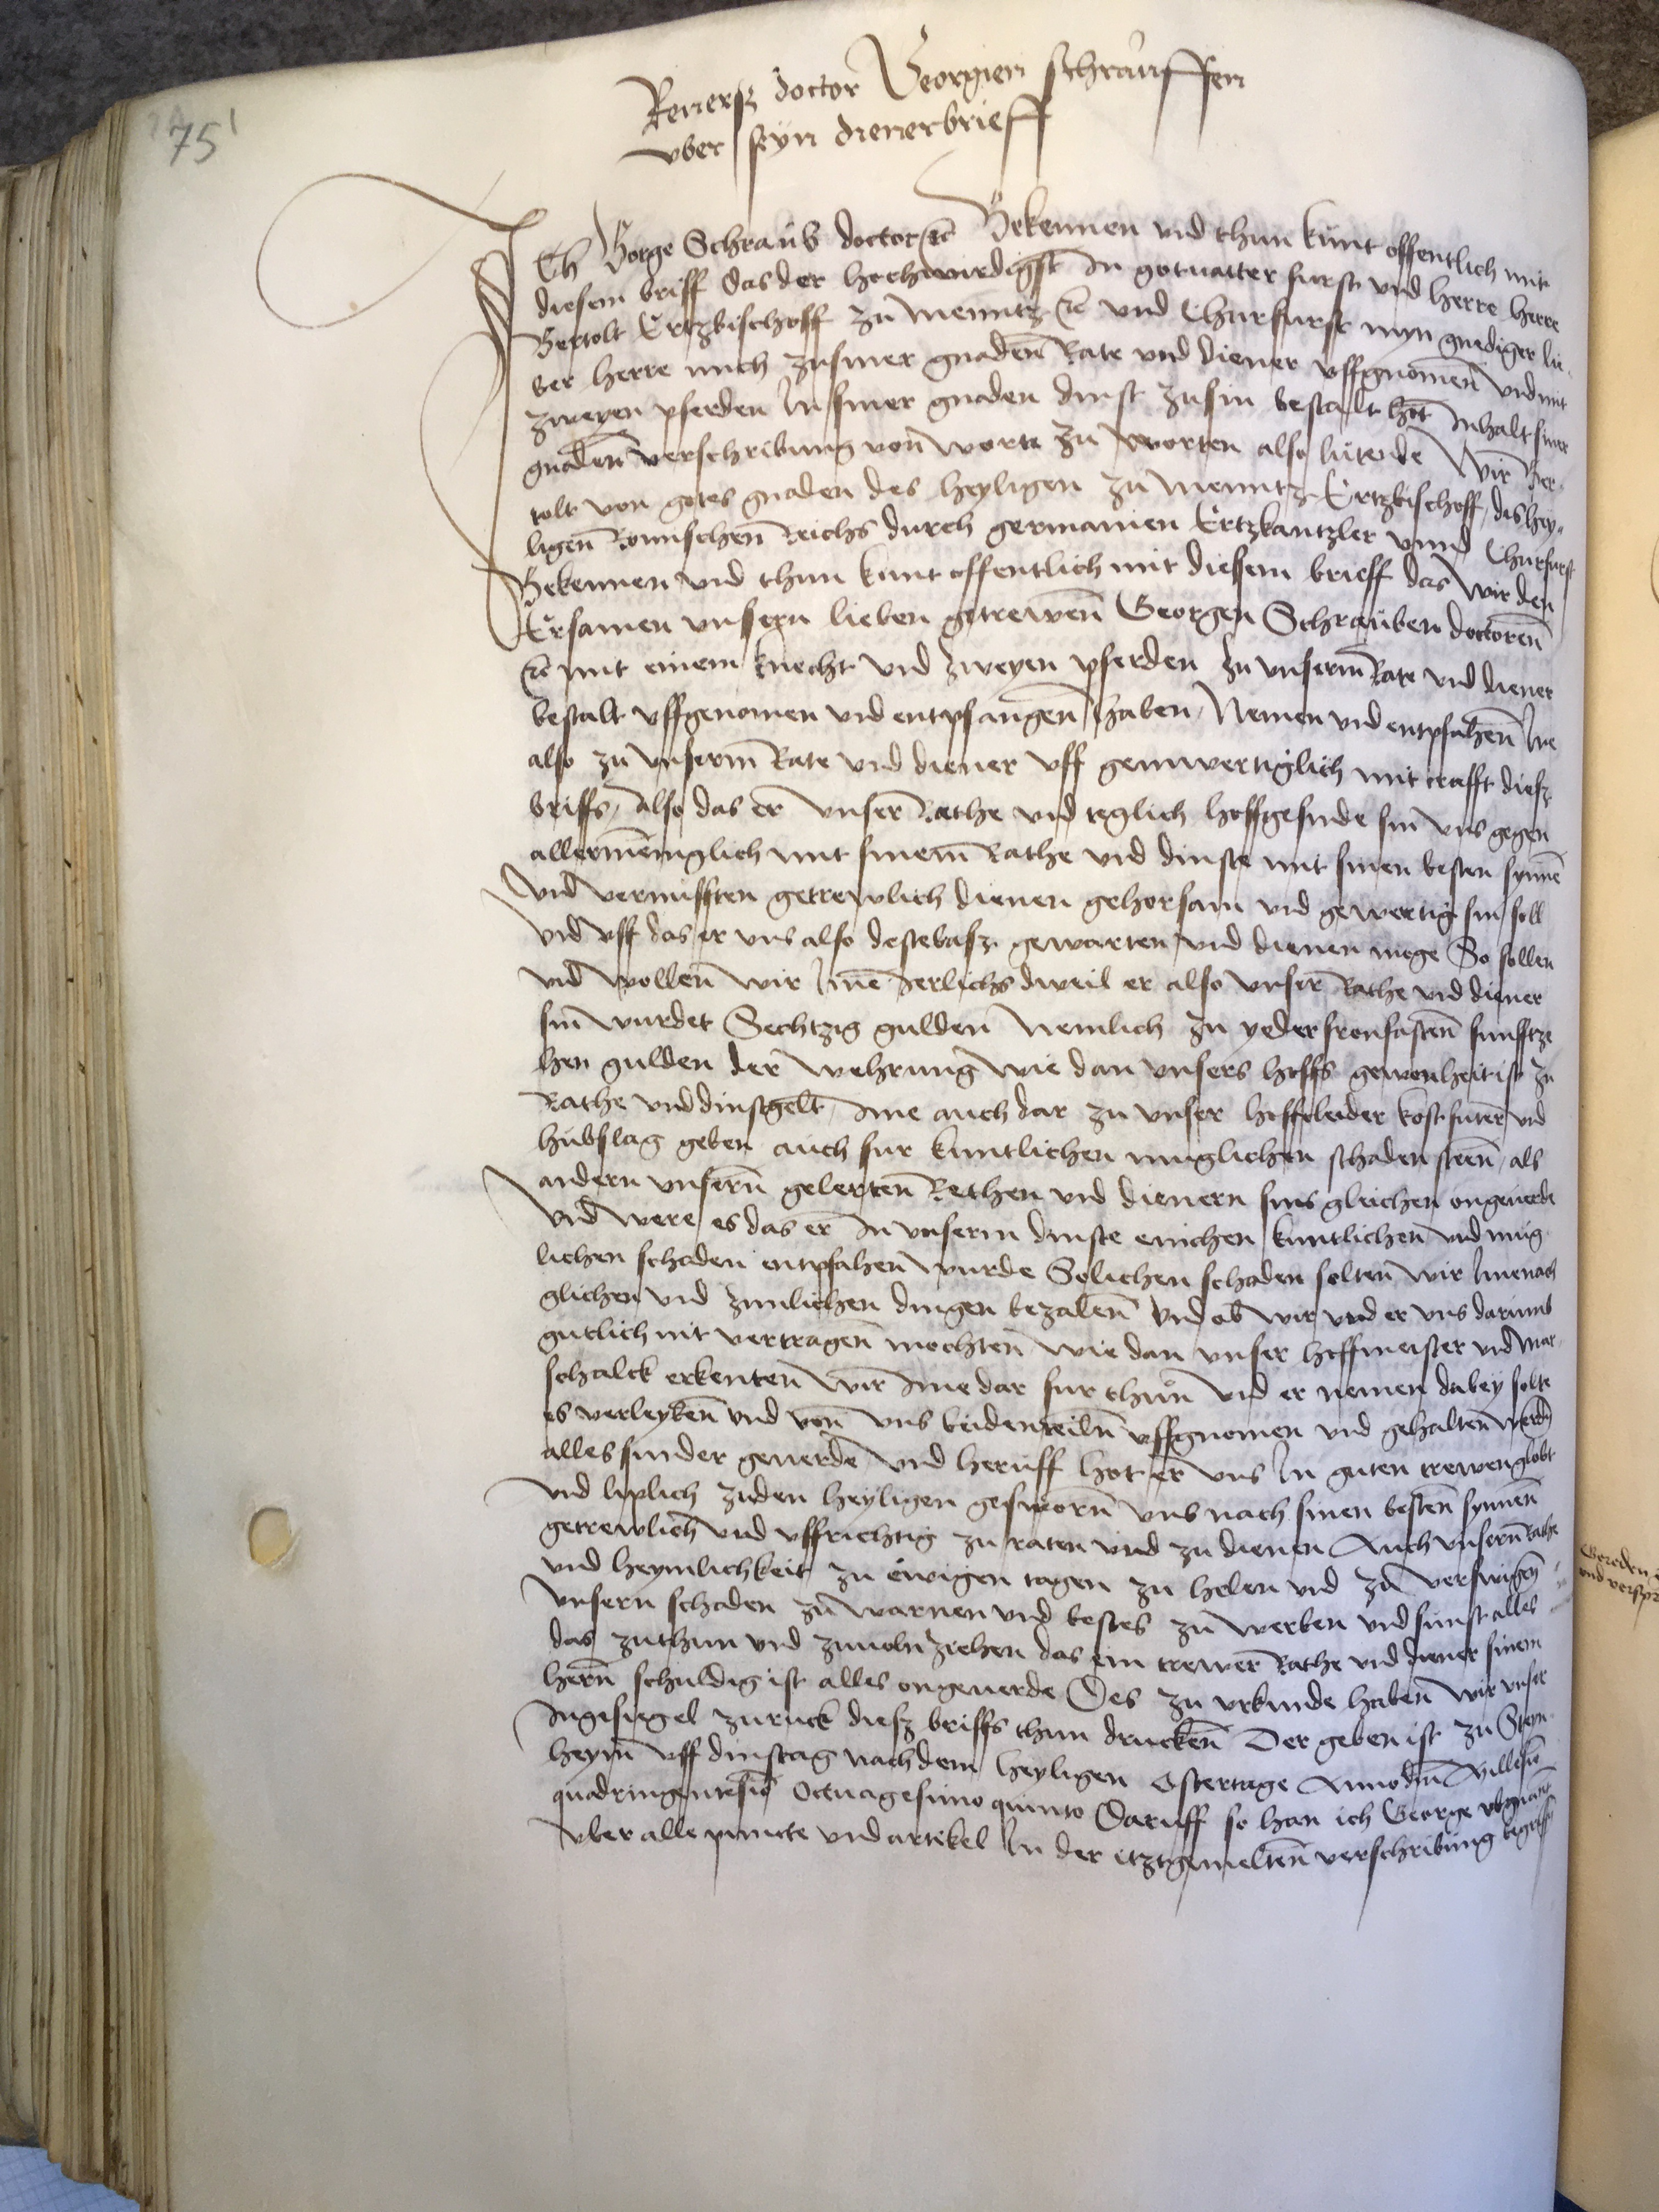 75'
Reuersz doctor Georgien schrauffen
vber syn dienerbrieff
Ich Gorge Schraub doctor etc Bekennen vnd thun kunt offentlich mit
diesem briff das der hochwirdigst In got vatter furst vnd herre herre
Bertolt Ertzbischoff zu Menntz etc vnd Churfurst myn gnediger lie
ber herre mich zu siner gnaden Rate vnd diener vffgnomen vnd mit
zweyen pferden In siner gnaden dinst zu sin bestalt hot Inhalt siner
gnaden verschribung von worte zu worten also lutende Wir Ber
tolt von gotes gnaden des heyligen zu Menntz Ertzbischoff, des hey
ligen Romischen Reichs durch germanien Ertzkantzler vnnd Churfurst
Bekennen vnd thun kunt offentlich mit diesem brieff das wir den
Ersamen vnsern lieben getrewen Georgen Schrauben doctoren
etc mit einem knecht vnd zweyen pferden zu vnserm Rate vnd diener
bestalt vffgenomen vnd entpfangen haben, Nemen vnd entpfahen Ine
also zu vnserm Rate vnd diener vff gennwertiglich mit crafft diesz
briffs, Also das er vnser Rathe vnd teglich hoffgesinde sin vns gegen
allermeniglich mit sinem Rathe vnd dinste mit sinen besten synne
vnd vernufften getrewlich dienen gehorsam vnd gewertig sin soll
vnd vff das er vns also destebasz gewarten vnd dienen moge So sollen
vnd wollen wir Ime Ierlichs dweil er also vnser Rathe vnd diener
sin wurdet Sechtzig gulden Nemlich zu yeder fronfasten funfftze
hen gulden der wehrung wie dan vnsers hoffs gewonheit ist zu
Rathe vnd dinstgelt, Ime auch dar zu vnser hoffcleider kost futer vnd
hubslag geben auch fur kuntlichen muglichen schaden steen, als
andern vnsern gelerten Rethen vnd dienern sins gleichen ongeuerde
vnd were es das er In vnserm dinste einichen kuntlichen vnd mug
lichen schaden entpfahen wurde Solichen schaden solten wir Ime nach
glichen vnd zimlichen dingen bezalen vnd ob wir vnd er vns darumb
gutlich nit vertragen mochten wie dan vnser hoffmeister vnd Mar
schalck erkenten wir Ime dar fur thun vnd er nemen dabey solte
es verleyben vnd von vns beiden teiln vffgnomen vnd gehalten werden
alles sunder geuerde vnd heruff hot er vns In guten trewen globt
vnd liplich zu den heyligen gesworn vns nach sinen besten synnen
getrewlich vnd vffrichtig zu raten vnd zu dienen Auch vnsern Rathe
vnd heymlichkeit zu ewigen tagen zu helen vnd zu verswigen
vnsern schaden zu warnen vnd bestes zu werben vnd sunst alles
das zu thun vnd zuuoln ziehen das ein trewer Rathe vnd diener sinem
hern schuldig ist alles ongeuerde Des zu vrkunde haben wir vnser
Ingesiegel zuruck diesz briffs thun drucken Der geben ist zu Stein
heym vff dinstag nach dem heyligen Ostertage Anno dni Millesimo
quadringentesimo Octuagesimo quinto Daruff so han ich George obgnant
vber alle puncte vnd artikel In der itztgemelten verschribung begriffen
Gereden
vnd verspr